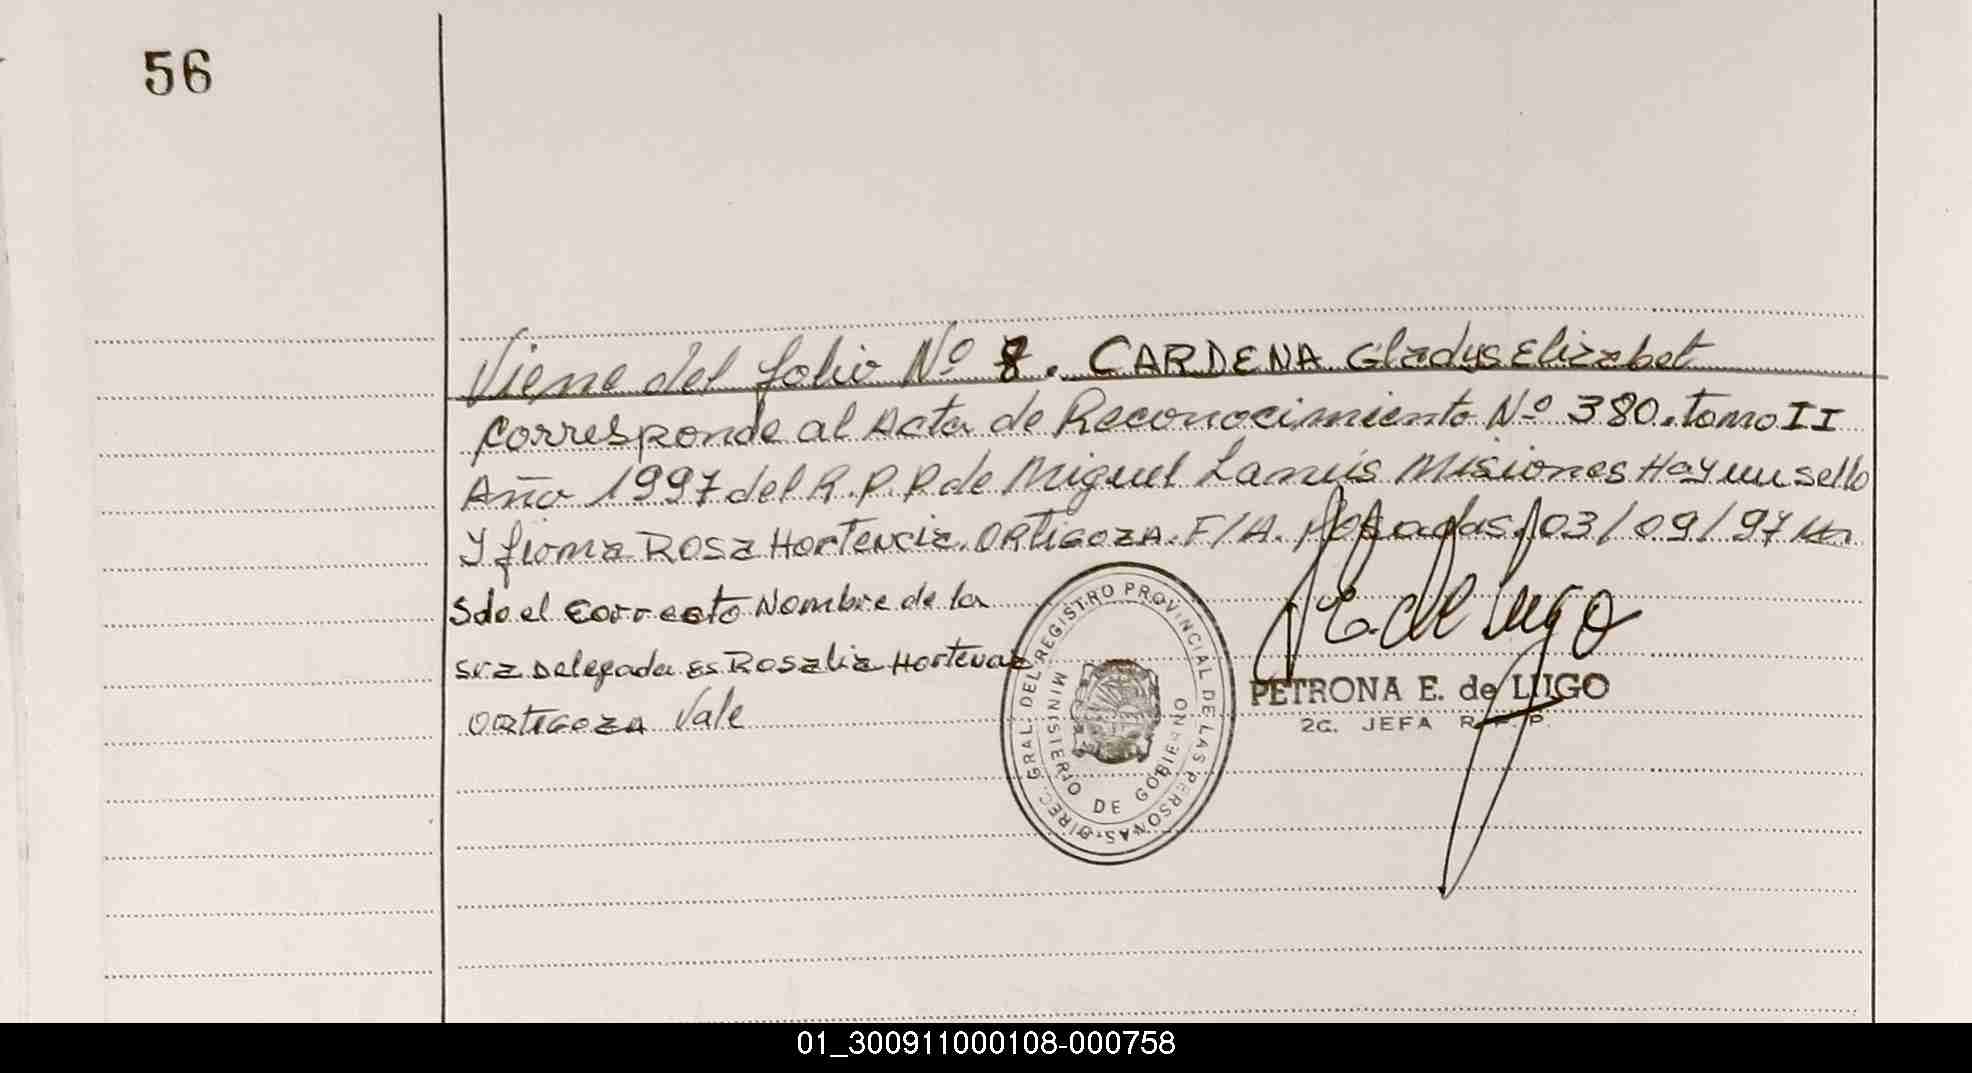 56
Viene del folio Nº 8. CARDENA Gladys Elizabet
corresponde al Acta de Reconocimiento Nº 380. tomo II
Año 1997 del R.P.P. de Miguel Lanús Misiones Hay un sello
y firma Rosa Hortencia ORTIGOZA. F/A. Posadas, 03/09/97
Sdo el correcto Nombre de la
sra Delegada Es Rosalia Hortencia
ORTIGOZA Vale
DIREC. GRAL. DEL REGISTRO PROVINCIAL DE LAS PERSONAS
MINISTERIO DE GOBIERNO
P E. de Lugo
PETRONA E. de LUGO
2G. JEFA R. P. P.
01_300911000108-000758